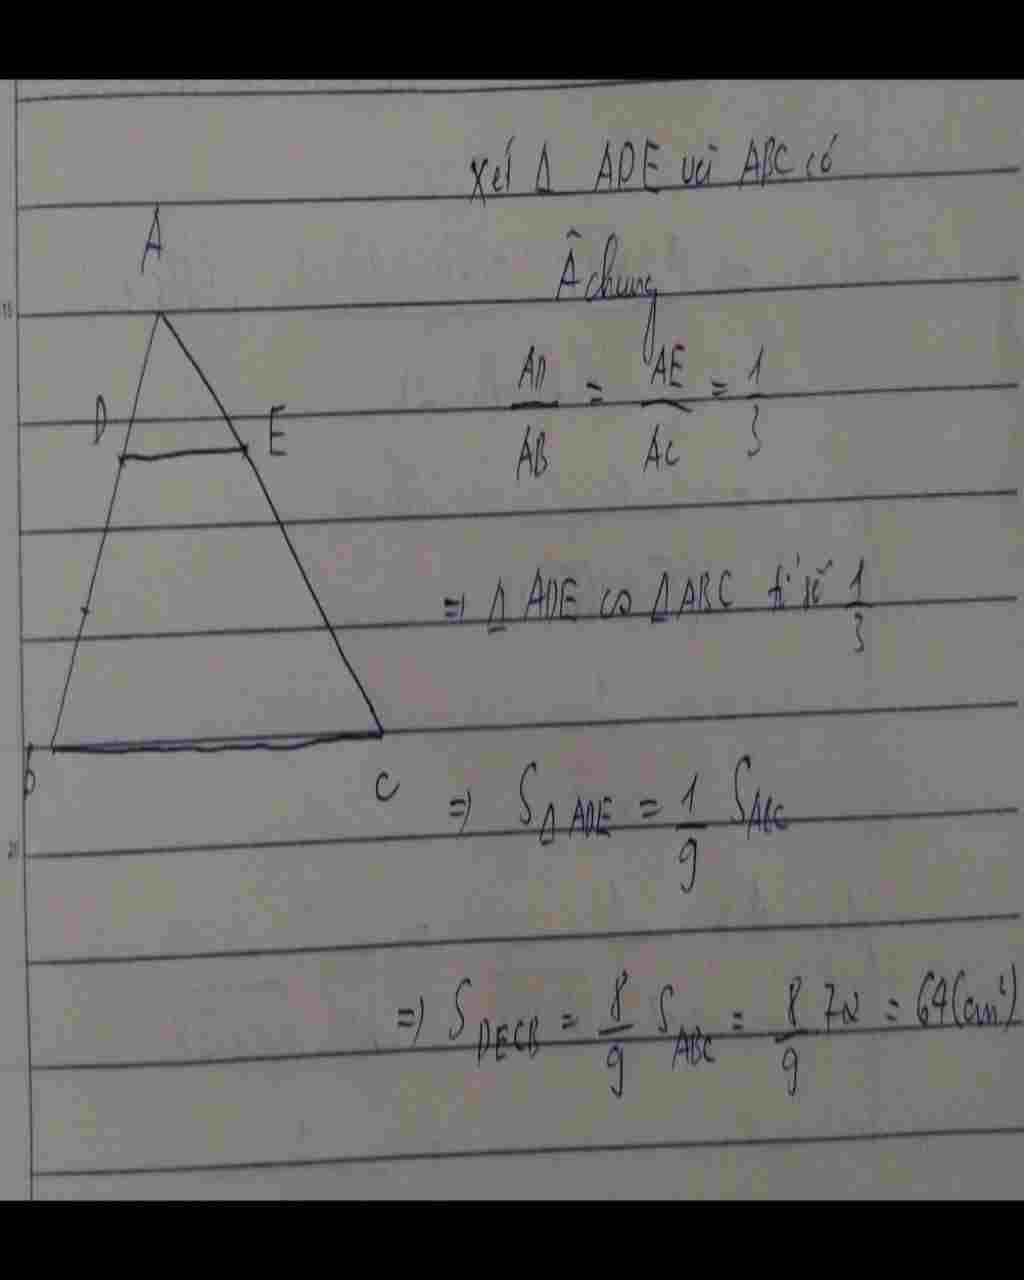 Xét Δ ADE và ABC có
A
Â chung
AD/AB = AE/AC = 1/3
D
E
=> Δ ADE ∽ Δ ABC tỉ số 1/3
B
C
=> S Δ ADE = 1/9 S ABC
=> S DECB = 8/9 S ABC = 8/9 72 = 64 (cm²)